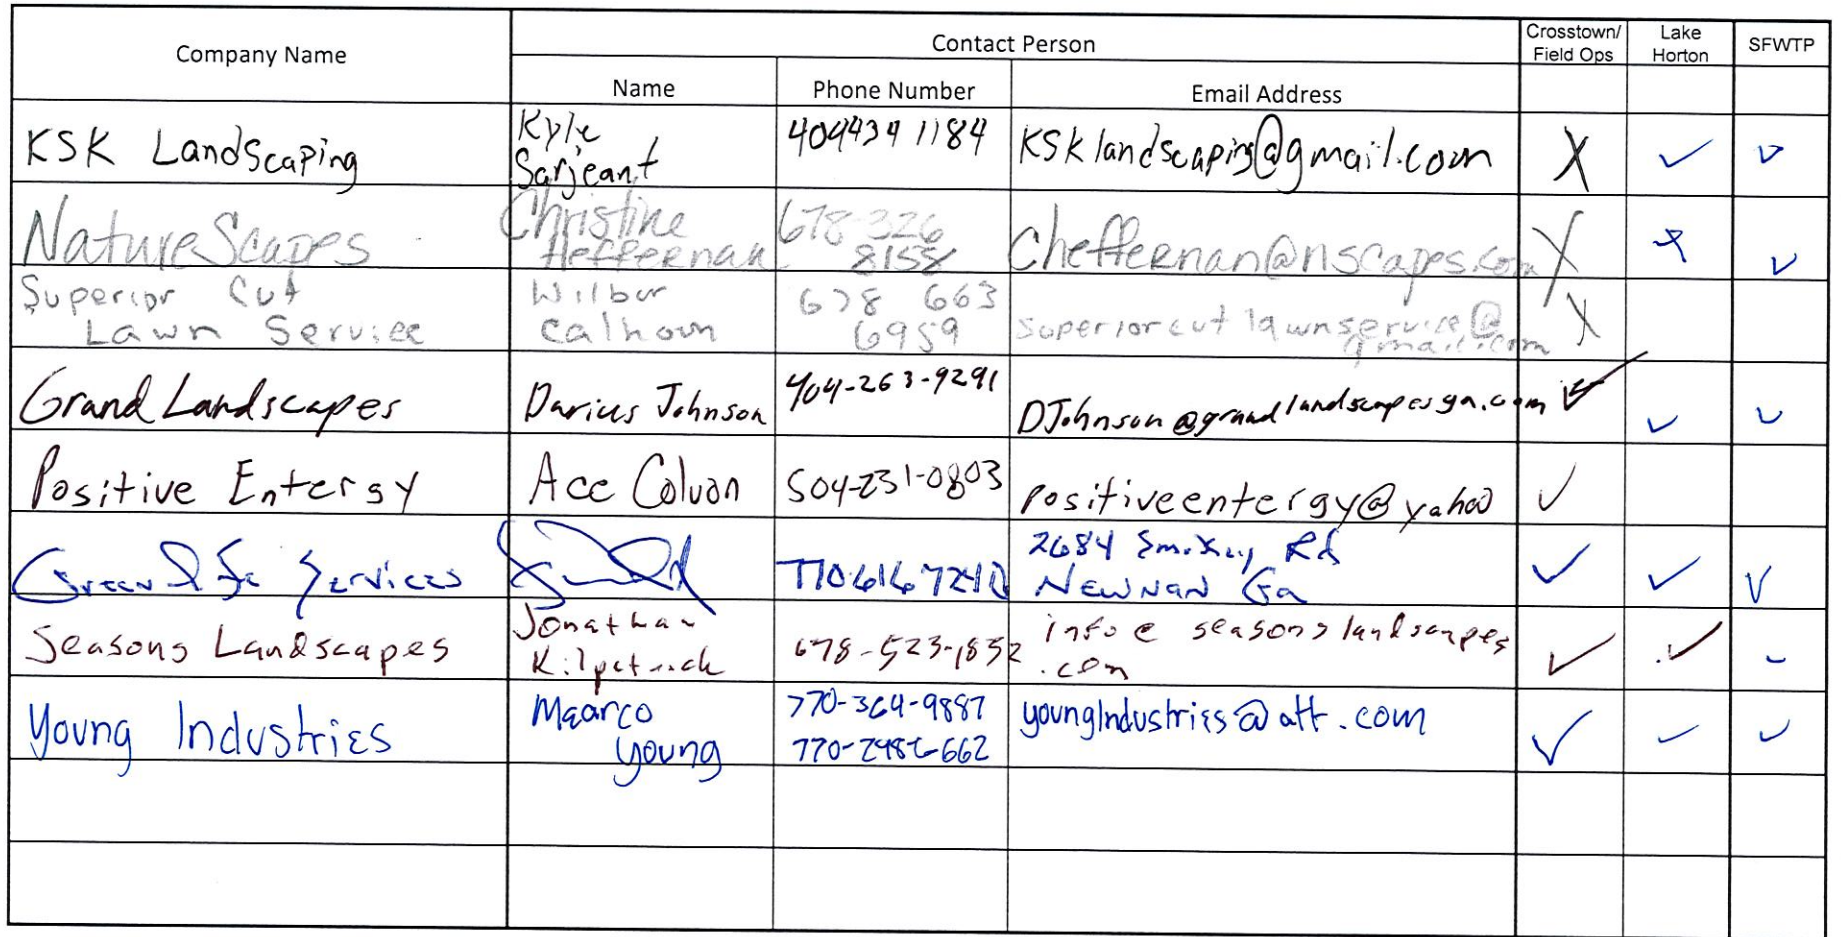 Company Name Contact Person Crosstown/ Field Ops Lake Horton SFWTP
Name Phone Number Email Address
KSK Landscaping Kyle Sarjeant 4044341184 KSKlandscaping@gmail.com X ✓ ✓
NatureScapes Christine Heffernan 678-326 8158 Cheffernan@nscapes.com X ✓
Superior Cut Lawn Service Wilbur Calhoun 678 663 6959 superiorcutlawnservice@gmail.com X
Grand Landscapes Darius Johnson 404-263-9291 DJohnson@grandlandscapesga.com ✓ ✓ ✓
Positive Entergy Ace Colvon 504-231-0803 positiveentergy@yahoo ✓
Services 2684 Rd Newnan Ga ✓ ✓ ✓
Seasons Landscapes Jonathan Kilpatrick 678-523-1832 info@seasonslandscapes.com ✓ ✓ ✓
Young Industries Maarco Young 770-364-9887 youngIndustries@att.com ✓ ✓ ✓